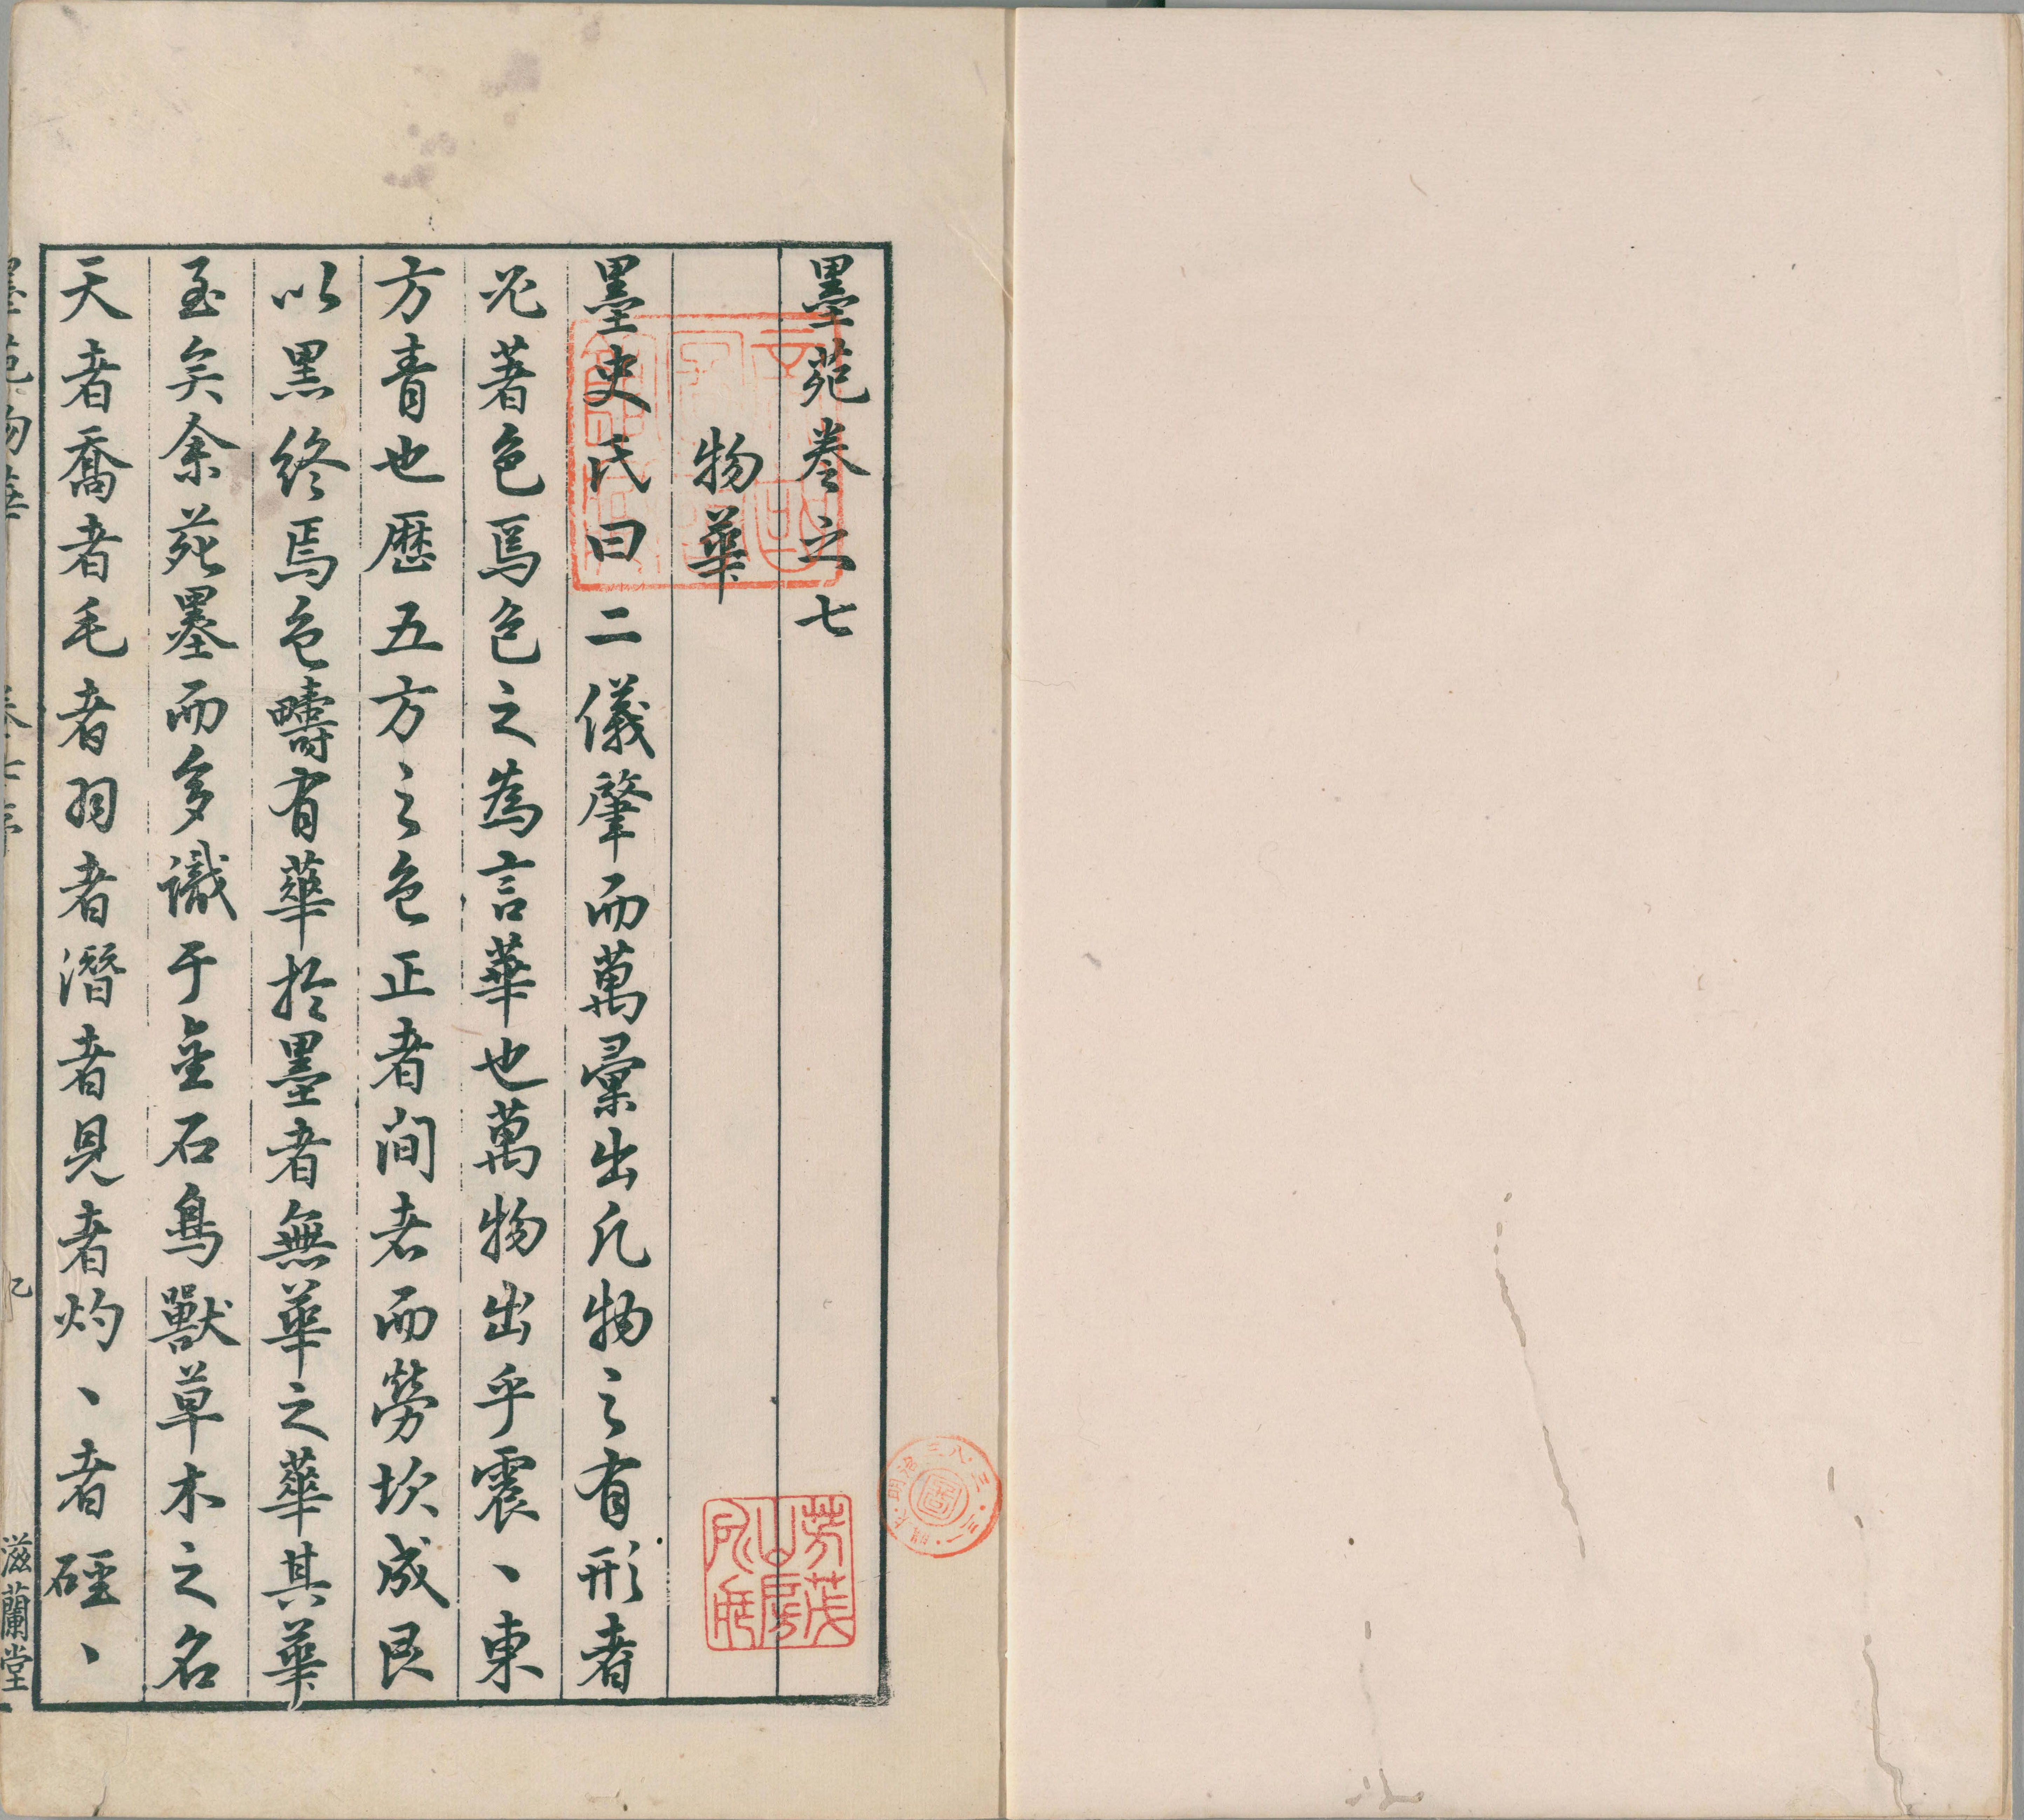 墨苑卷之七
物華
墨史氏曰二儀肇而萬彙出凡物之有形者
必著色焉色之為言華也萬物出乎震丶東
方青也歷五方之色正者間者而勞坎成艮
以黑終焉色疇有華於墨者無華之華其華
至矣余苑墨而多識于金石鳥獸草木之名
天者喬者毛者羽者潛者見者灼丶者硜丶
墨苑物華
卷七序
滋蘭堂
芳茂
山房
明治三八